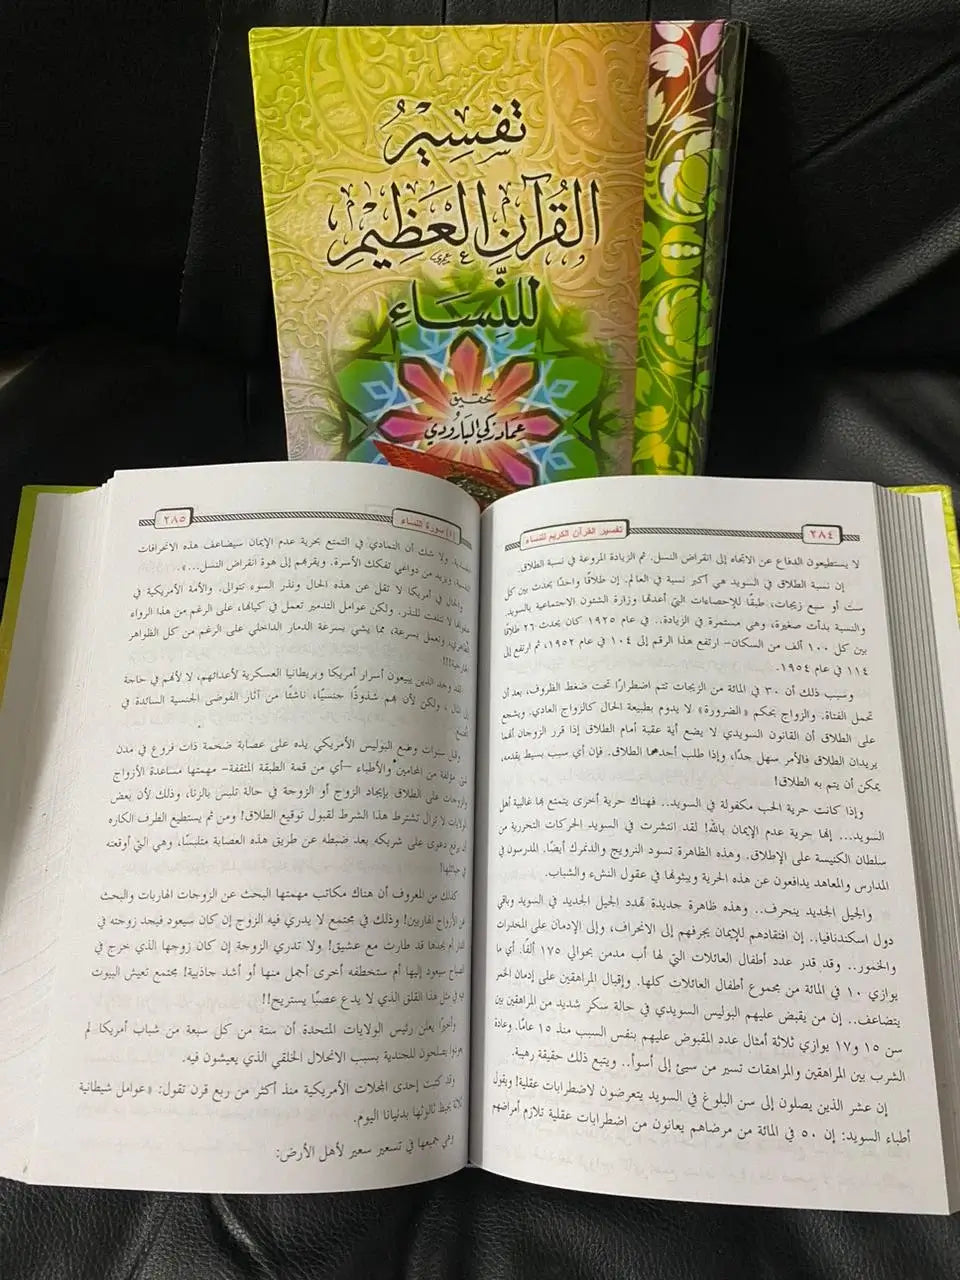 تفسير
القرآن العظيم
للنساء
تحقيق
عماد زكي البارودي
٢٨٤
تفسير القرآن الكريم للنساء
لا يستطيعون الدفاع عن الاتجاه إلى انقراض النسل. ثم الزيادة المروعة في نسبة الطلاق.
إن نسبة الطلاق في السويد هي أكبر نسبة في العالم. إن طلاقًا واحدًا يحدث بين كل
ست أو سبع زيجات، طبقًا للإحصاءات التي أعدتها وزارة الشئون الاجتماعية بالسويد.
والنسبة بدأت صغيرة، وهي مستمرة في الزيادة.. في عام ١٩٢٥ كان يحدث ٢٦ طلاقًا
بين كل ١٠٠ ألف من السكان- ارتفع هذا الرقم إلى ١٠٤ في عام ١٩٥٢، ثم ارتفع إلى
١١٤ في عام ١٩٥٤.
وسبب ذلك أن ٣٠ في المائة من الزيجات تتم اضطرارًا تحت ضغط الظروف، بعد أن
تحمل الفتاة. والزواج بحكم «الضرورة» لا يدوم بطبيعة الحال كالزواج العادي. ويشجع
على الطلاق أن القانون السويدي لا يضع أية عقبة أمام الطلاق إذا قرر الزوجان أنهما
يريدان الطلاق فالأمر سهل جدًا، وإذا طلب أحدهما الطلاق. فإن أي سبب بسيط يقدمه،
يمكن أن يتم به الطلاق!
وإذا كانت حرية الحب مكفولة في السويد.. فهناك حرية أخرى يتمتع بها غالبية أهل
السويد... إنها حرية عدم الإيمان بالله! لقد انتشرت في السويد الحركات التحررية من
سلطان الكنيسة على الإطلاق. وهذه الظاهرة تسود النرويج والدنمرك أيضًا. المدرسون في
المدارس والمعاهد يدافعون عن هذه الحرية ويبثونها في عقول النشء والشباب.
والجيل الجديد ينحرف.. وهذه ظاهرة جديدة تهدد الجيل الجديد في السويد وباقي
دول اسكندنافيا.. إن افتقادهم للإيمان يجرفهم إلى الانحراف، وإلى الإدمان على المخدرات
والخمور.. وقد قدر عدد أطفال العائلات التي لها أب مدمن بحوالي ١٧٥ ألفًا. أي ما
يوازي ١٠ في المائة من مجموع أطفال العائلات كلها. وإقبال المراهقين على إدمان الخمر
يتضاعف.. إن من يقبض عليهم البوليس السويدي في حالة سكر شديد من المراهقين بين
سن ١٥ و١٧ يوازي ثلاثة أمثال عدد المقبوض عليهم بنفس السبب منذ ١٥ عامًا. وعادة
الشرب بين المراهقين والمراهقات تسير من سيئ إلى أسوأ.. ويتبع ذلك حقيقة رهيبة.
إن عشر الذين يصلون إلى سن البلوغ في السويد يتعرضون لاضطرابات عقلية! ويقول
أطباء السويد: إن ٥٠ في المائة من مرضاهم يعانون من اضطرابات عقلية تلازم أمراضهم
(٤) سورة النساء
٢٨٥
ولا شك أن التمادي في التمتع بحرية عدم الإيمان سيضاعف هذه الانحرافات
النفسية، ويزيد من دواعي تفكك الأسرة. ويقربهم إلى هوة انقراض النسل...».
والحال في أمريكا لا تقل عن هذه الحال ونذر السوء تتوالى. والأمة الأمريكية في
لا تتلفت للنذر. ولكن عوامل التدمير تعمل في كيانها، على الرغم من هذا الرواء
وتعمل بسرعة، مما يشي بسرعة الدمار الداخلي على الرغم من كل الظواهر
الخارجية!!!
لقد وجد الذين يبيعون أسرار أمريكا وبريطانيا العسكرية لأعدائهم، لا لأنهم في حاجة
إلى المال، ولكن لأن بهم شذوذًا جنسيًا، ناشئًا من آثار الفوضى الجنسية السائدة في
المجتمع.
وقبل سنوات وضع البوليس الأمريكي يده على عصابة ضخمة ذات فروع في مدن
شتى مؤلفة من المحامين والأطباء –أي من قمة الطبقة المثقفة- مهمتها مساعدة الأزواج
والزوجات على الطلاق بإيجاد الزوج أو الزوجة في حالة تلبس بالزنا، وذلك لأن بعض
الولايات لا تزال تشترط هذا الشرط لقبول توقيع الطلاق! ومن ثم يستطيع الطرف الكاره
أن يرفع دعوى على شريكه بعد ضبطه عن طريق هذه العصابة متلبسًا، وهي التي أوقعته
في حبائلها!
كذلك من المعروف أن هناك مكاتب مهمتها البحث عن الزوجات الهاربات والبحث
عن الأزواج الهاربين! وذلك في مجتمع لا يدري فيه الزوج إن كان سيعود فيجد زوجته في
الدار أم يجدها قد طارت مع عشيق! ولا تدري الزوجة إن كان زوجها الذي خرج في
الصباح سيعود إليها أم ستخطفه أخرى أجمل منها أو أشد جاذبية! مجتمع تعيش البيوت
فيه في مثل هذا القلق الذي لا يدع عصبًا يستريح!!
وأخيرًا يعلن رئيس الولايات المتحدة أن ستة من كل سبعة من شباب أمريكا لم
يعودوا يصلحون للجندية بسبب الانحلال الخلقي الذي يعيشون فيه.
وقد كتبت إحدى المجلات الأمريكية منذ أكثر من ربع قرن تقول: «عوامل شيطانية
ثلاثة يحيط ثالوثها بدنيانا اليوم.
وهي جميعها في تسعير سعير لأهل الأرض: